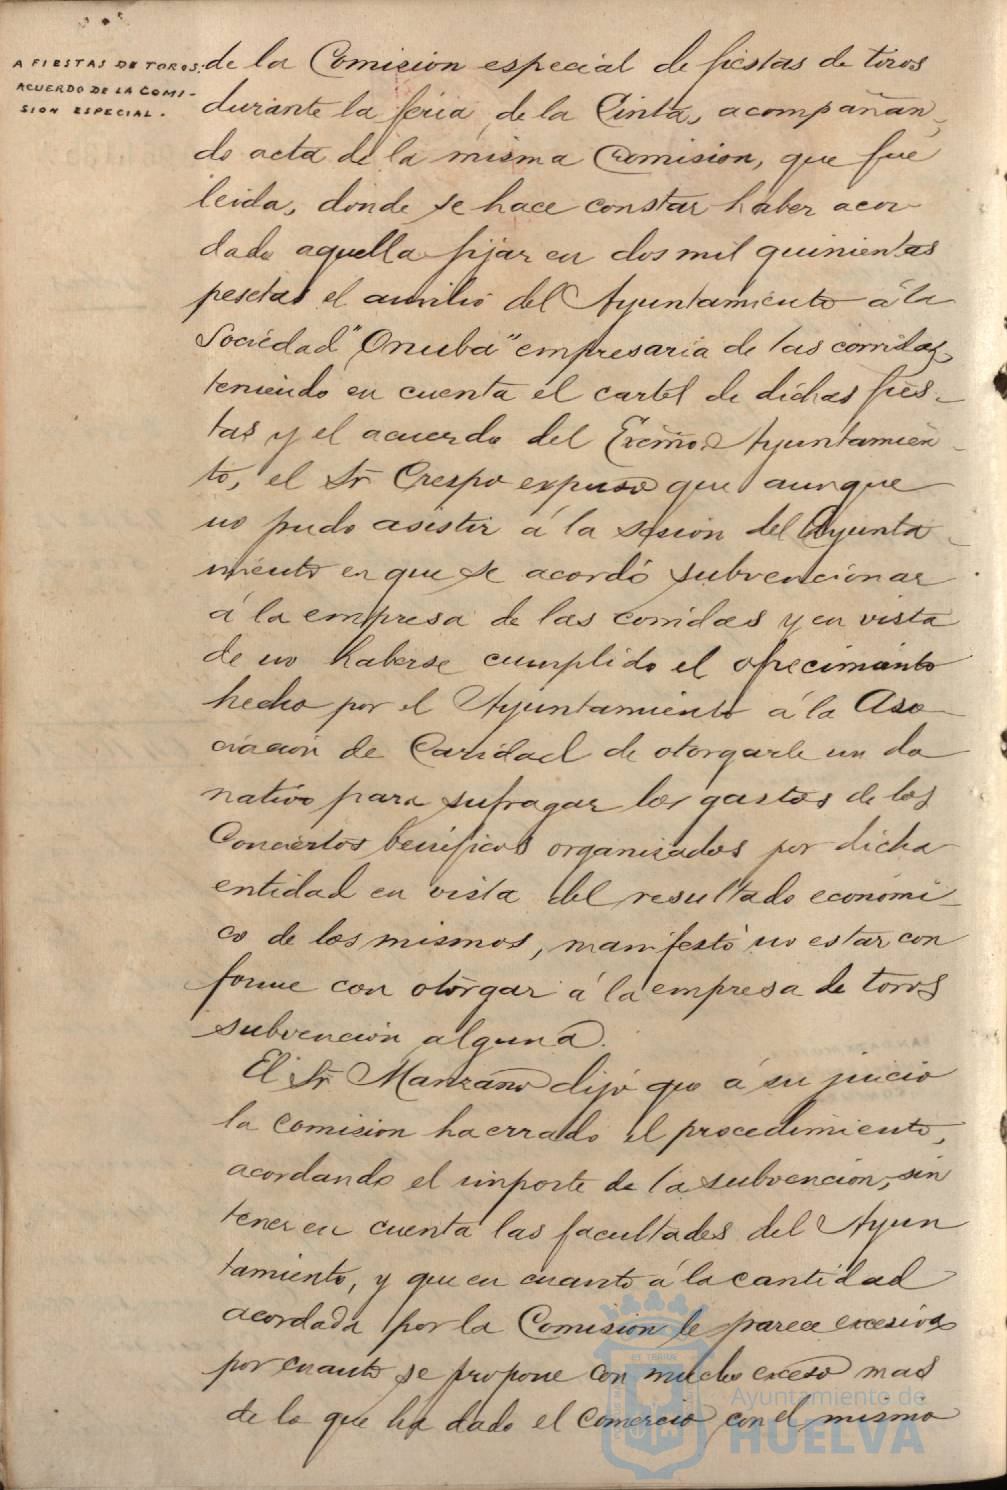 A FIESTAS DE TOROS.
ACUERDO DE LA COMI-
SION ESPECIAL.
de la Comision especial de fiestas de toros
durante la feria de la Cinta, acompañan-
do acta de la misma Comision, que fue
leida, donde se hace constar haber acor
dado aquella fijar en dos mil quinientas
pesetas el auxilio del Ayuntamiento á la
Sociedad "Onuba" empresaria de las corridas,
teniendo en cuenta el cartel de dichas fies-
tas y el acuerdo del Excmo. Ayuntamien-
to, el Sr. Crespo expuso que aunque
no pudo asistir á la sesion del Ayunta-
miento en que se acordó subvencionar
á la empresa de las corridas y en vista
de no haberse cumplido el ofrecimiento
hecho por el Ayuntamiento á la Aso
ciación de Caridad de otorgarle un do
nativo para sufragar los gastos de los
Conciertos benéficos organizados por dicha
entidad en vista del resultado económi-
co de los mismos, manifestó no estar con
forme con otorgar á la empresa de toros
subvención alguna.
El Sr. Manzano dijo que á su juicio
la comision ha errado el procedimiento,
acordando el importe de la subvencion, sin
tener en cuenta las facultades del Ayun
tamiento, y que en cuanto á la cantidad
acordada por la Comision le parece excesiva
por cuanto se propone con mucho exceso mas
de lo que ha dado el comercio con el mismo
Ayuntamiento de
HUELVA